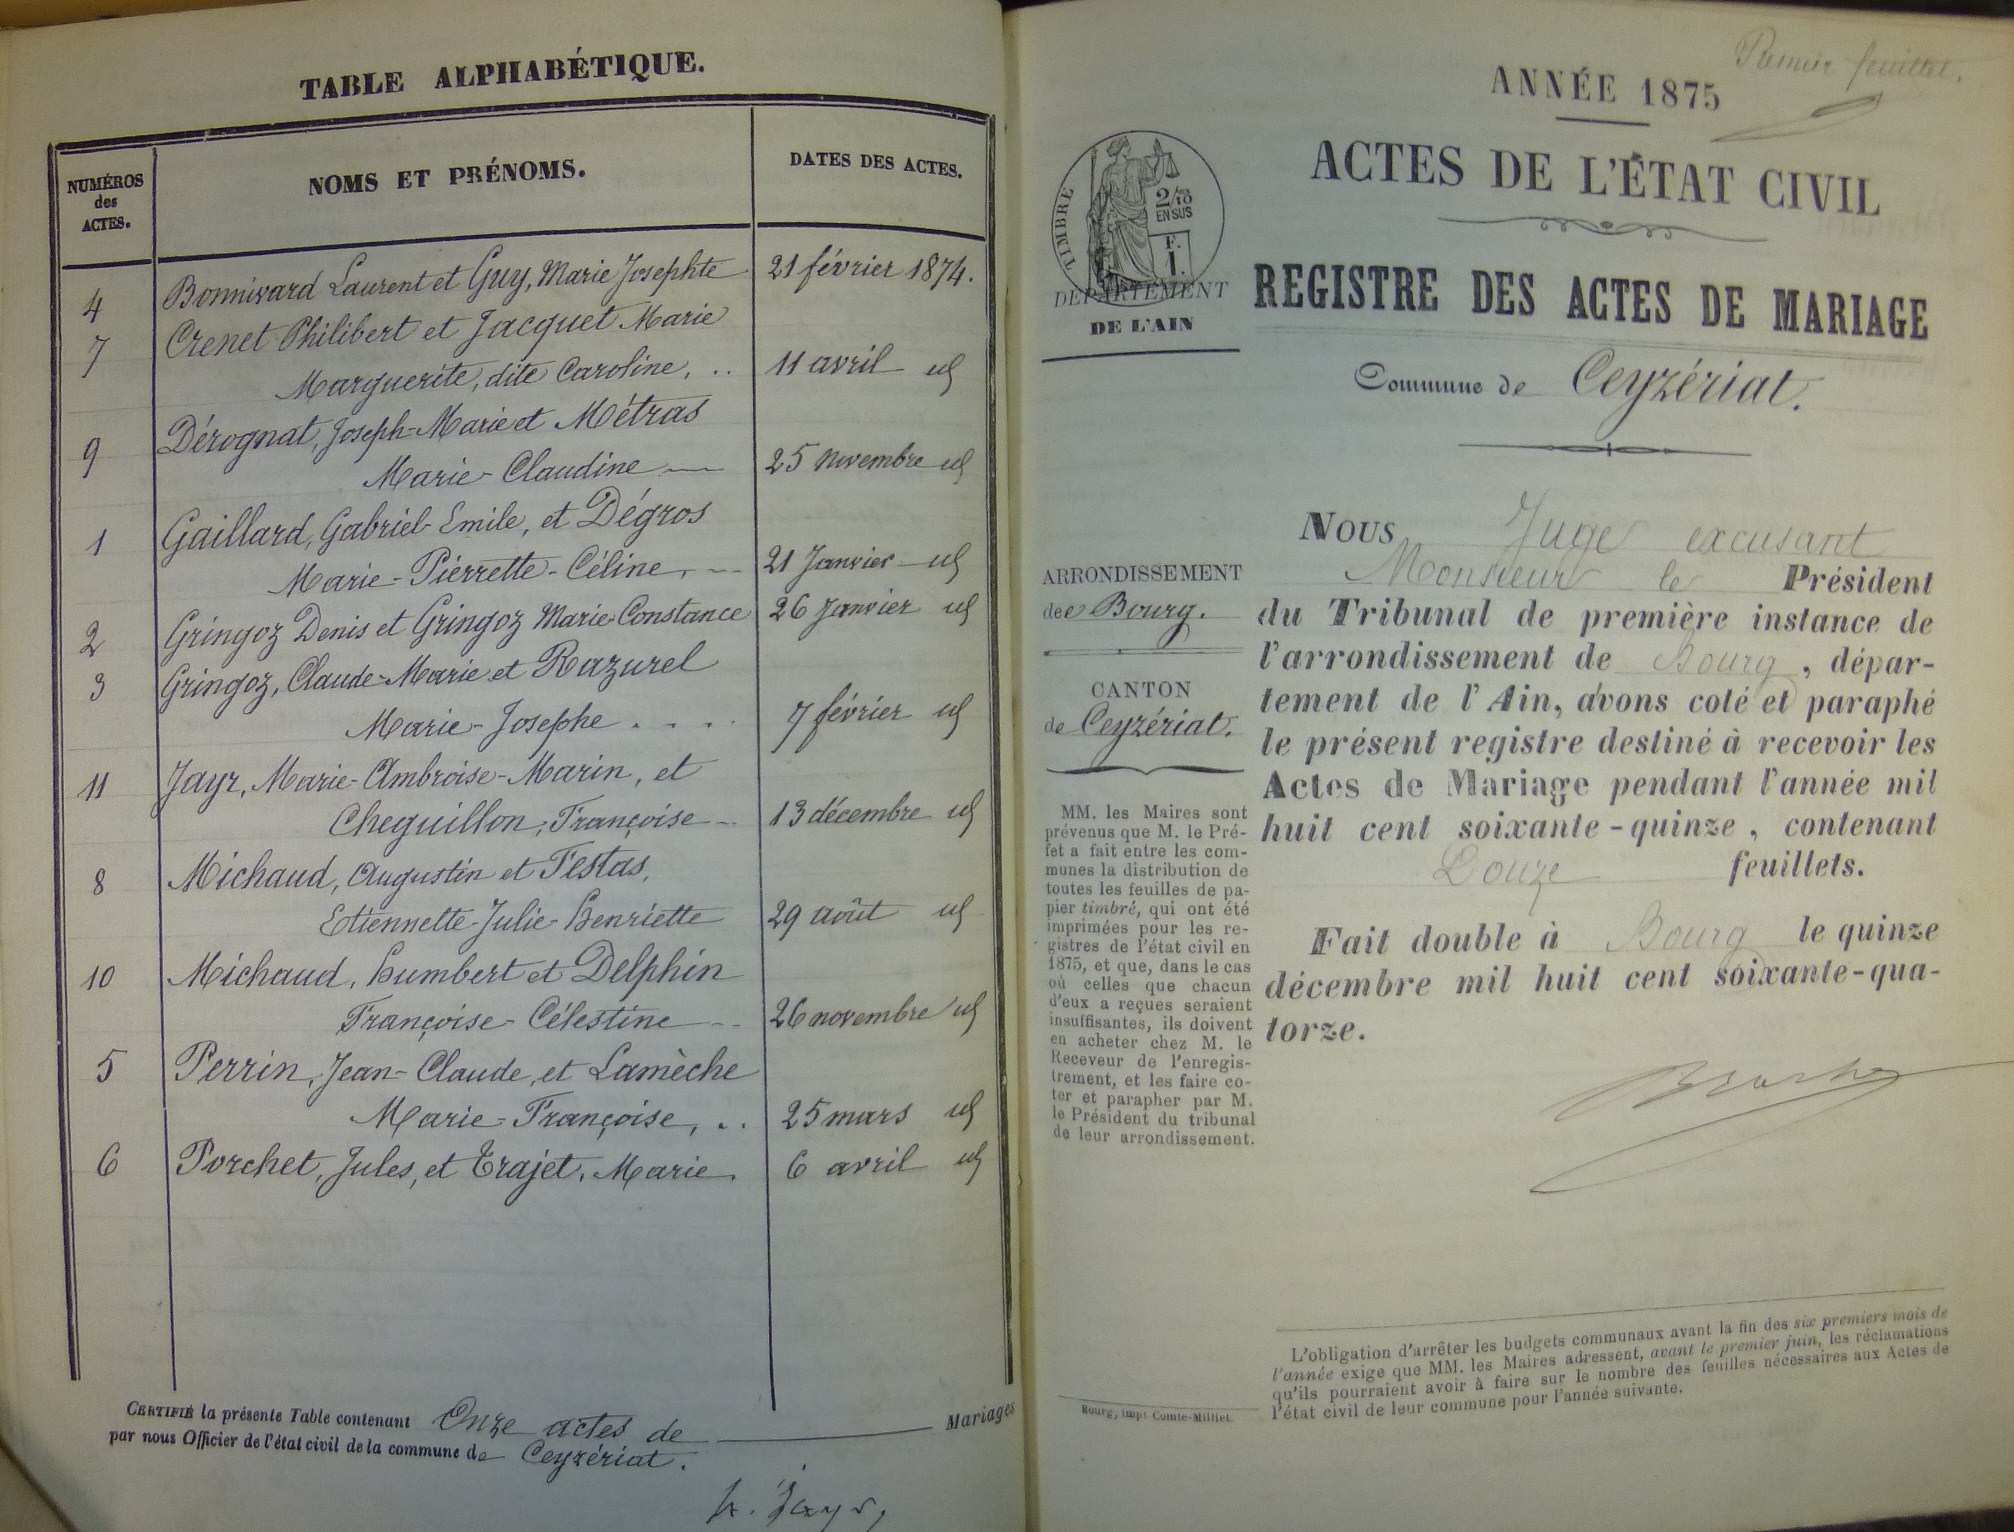 TABLE ALPHABÉTIQUE.
NUMÉROS
des
ACTES.
NOMS ET PRÉNOMS.
DATES DES ACTES.
4 Bonnivard Laurent et Guy, Marie Josephte 21 février 1874.
7 Crenet Philibert et Jacquet Marie
Marguerite, dite Caroline, .. 11 avril id
9 Dérognat, Joseph-Marie et Métras
Marie-Claudine 25 novembre id
1 Gaillard, Gabriel-Emile, et Dégros
Marie-Pierrette-Céline, 21 Janvier id
2 Gringoz Denis et Gringoz Marie-Constance 26 Janvier id
3 Gringoz, Claude-Marie et Razurel
Marie-Josephe . . . . 7 février id
11 Jayr, Marie-Ambroise-Marin, et
Cheguillon, Françoise 13 décembre id
8 Michaud, Augustin et Festas,
Etiennette-Julie-Henriette 29 août id
10 Michaud, Humbert et Delphin
Françoise-Célestine 26 novembre id
5 Perrin, Jean-Claude, et Lamèche
Marie-Françoise, .. 25 mars id
6 Porchet, Jules, et Trajet, Marie. 6 avril id
CERTIFIÉ la présente Table contenant Onze actes de Mariages
par nous Officier de l'état civil de la commune de Ceyzériat.
Jayr,
Premier feuillet.
ANNÉE 1875
ACTES DE L'ÉTAT CIVIL
REGISTRE DES ACTES DE MARIAGE
Commune de Ceyzériat.
TIMBRE
2/10
EN SUS
F.
1.
DÉPARTEMENT
DE L'AIN
ARRONDISSEMENT
de Bourg.
CANTON
de Ceyzériat.
MM. les Maires sont
prévenus que M. le Pré-
fet a fait entre les com-
munes la distribution de
toutes les feuilles de pa-
pier timbré, qui ont été
imprimées pour les re-
gistres de l'état civil en
1875, et que, dans le cas
où celles que chacun
d'eux a reçues seraient
insuffisantes, ils doivent
en acheter chez M. le
Receveur de l'enregis-
trement, et les faire co-
ter et parapher par M.
le Président du tribunal
de leur arrondissement.
Bourg, impr Comte-Milliet.
NOUS Juge excusant
Monsieur le Président
du Tribunal de première instance de
l'arrondissement de Bourg, dépar-
tement de l'Ain, avons coté et paraphé
le présent registre destiné à recevoir les
Actes de Mariage pendant l'année mil
huit cent soixante-quinze, contenant
Douze feuillets.
Fait double à Bourg le quinze
décembre mil huit cent soixante-qua-
torze.
L'obligation d'arrêter les budgets communaux avant la fin des six premiers mois de
l'année exige que MM. les Maires adressent, avant le premier juin, les réclamations
qu'ils pourraient avoir à faire sur le nombre des feuilles nécessaires aux Actes de
l'état civil de leur commune pour l'année suivante.